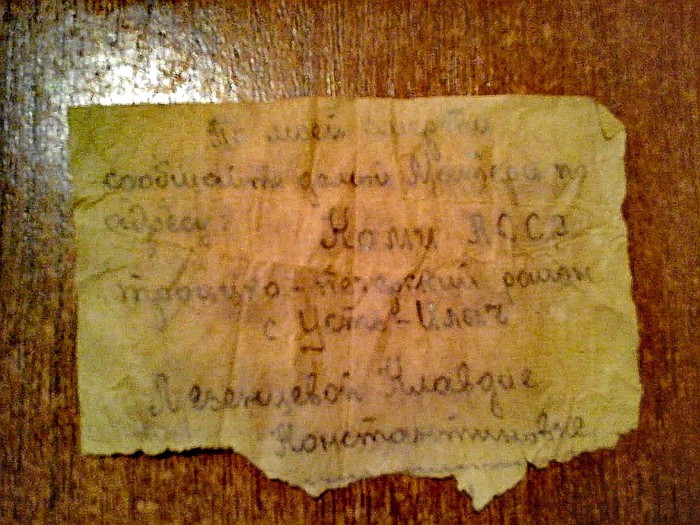 По моей смерти
сообщайте домой по
адресу: Коми АССР
троицко-печорский район
с Усть-Илыч
Мезенцевой Клавдие
Константиновне